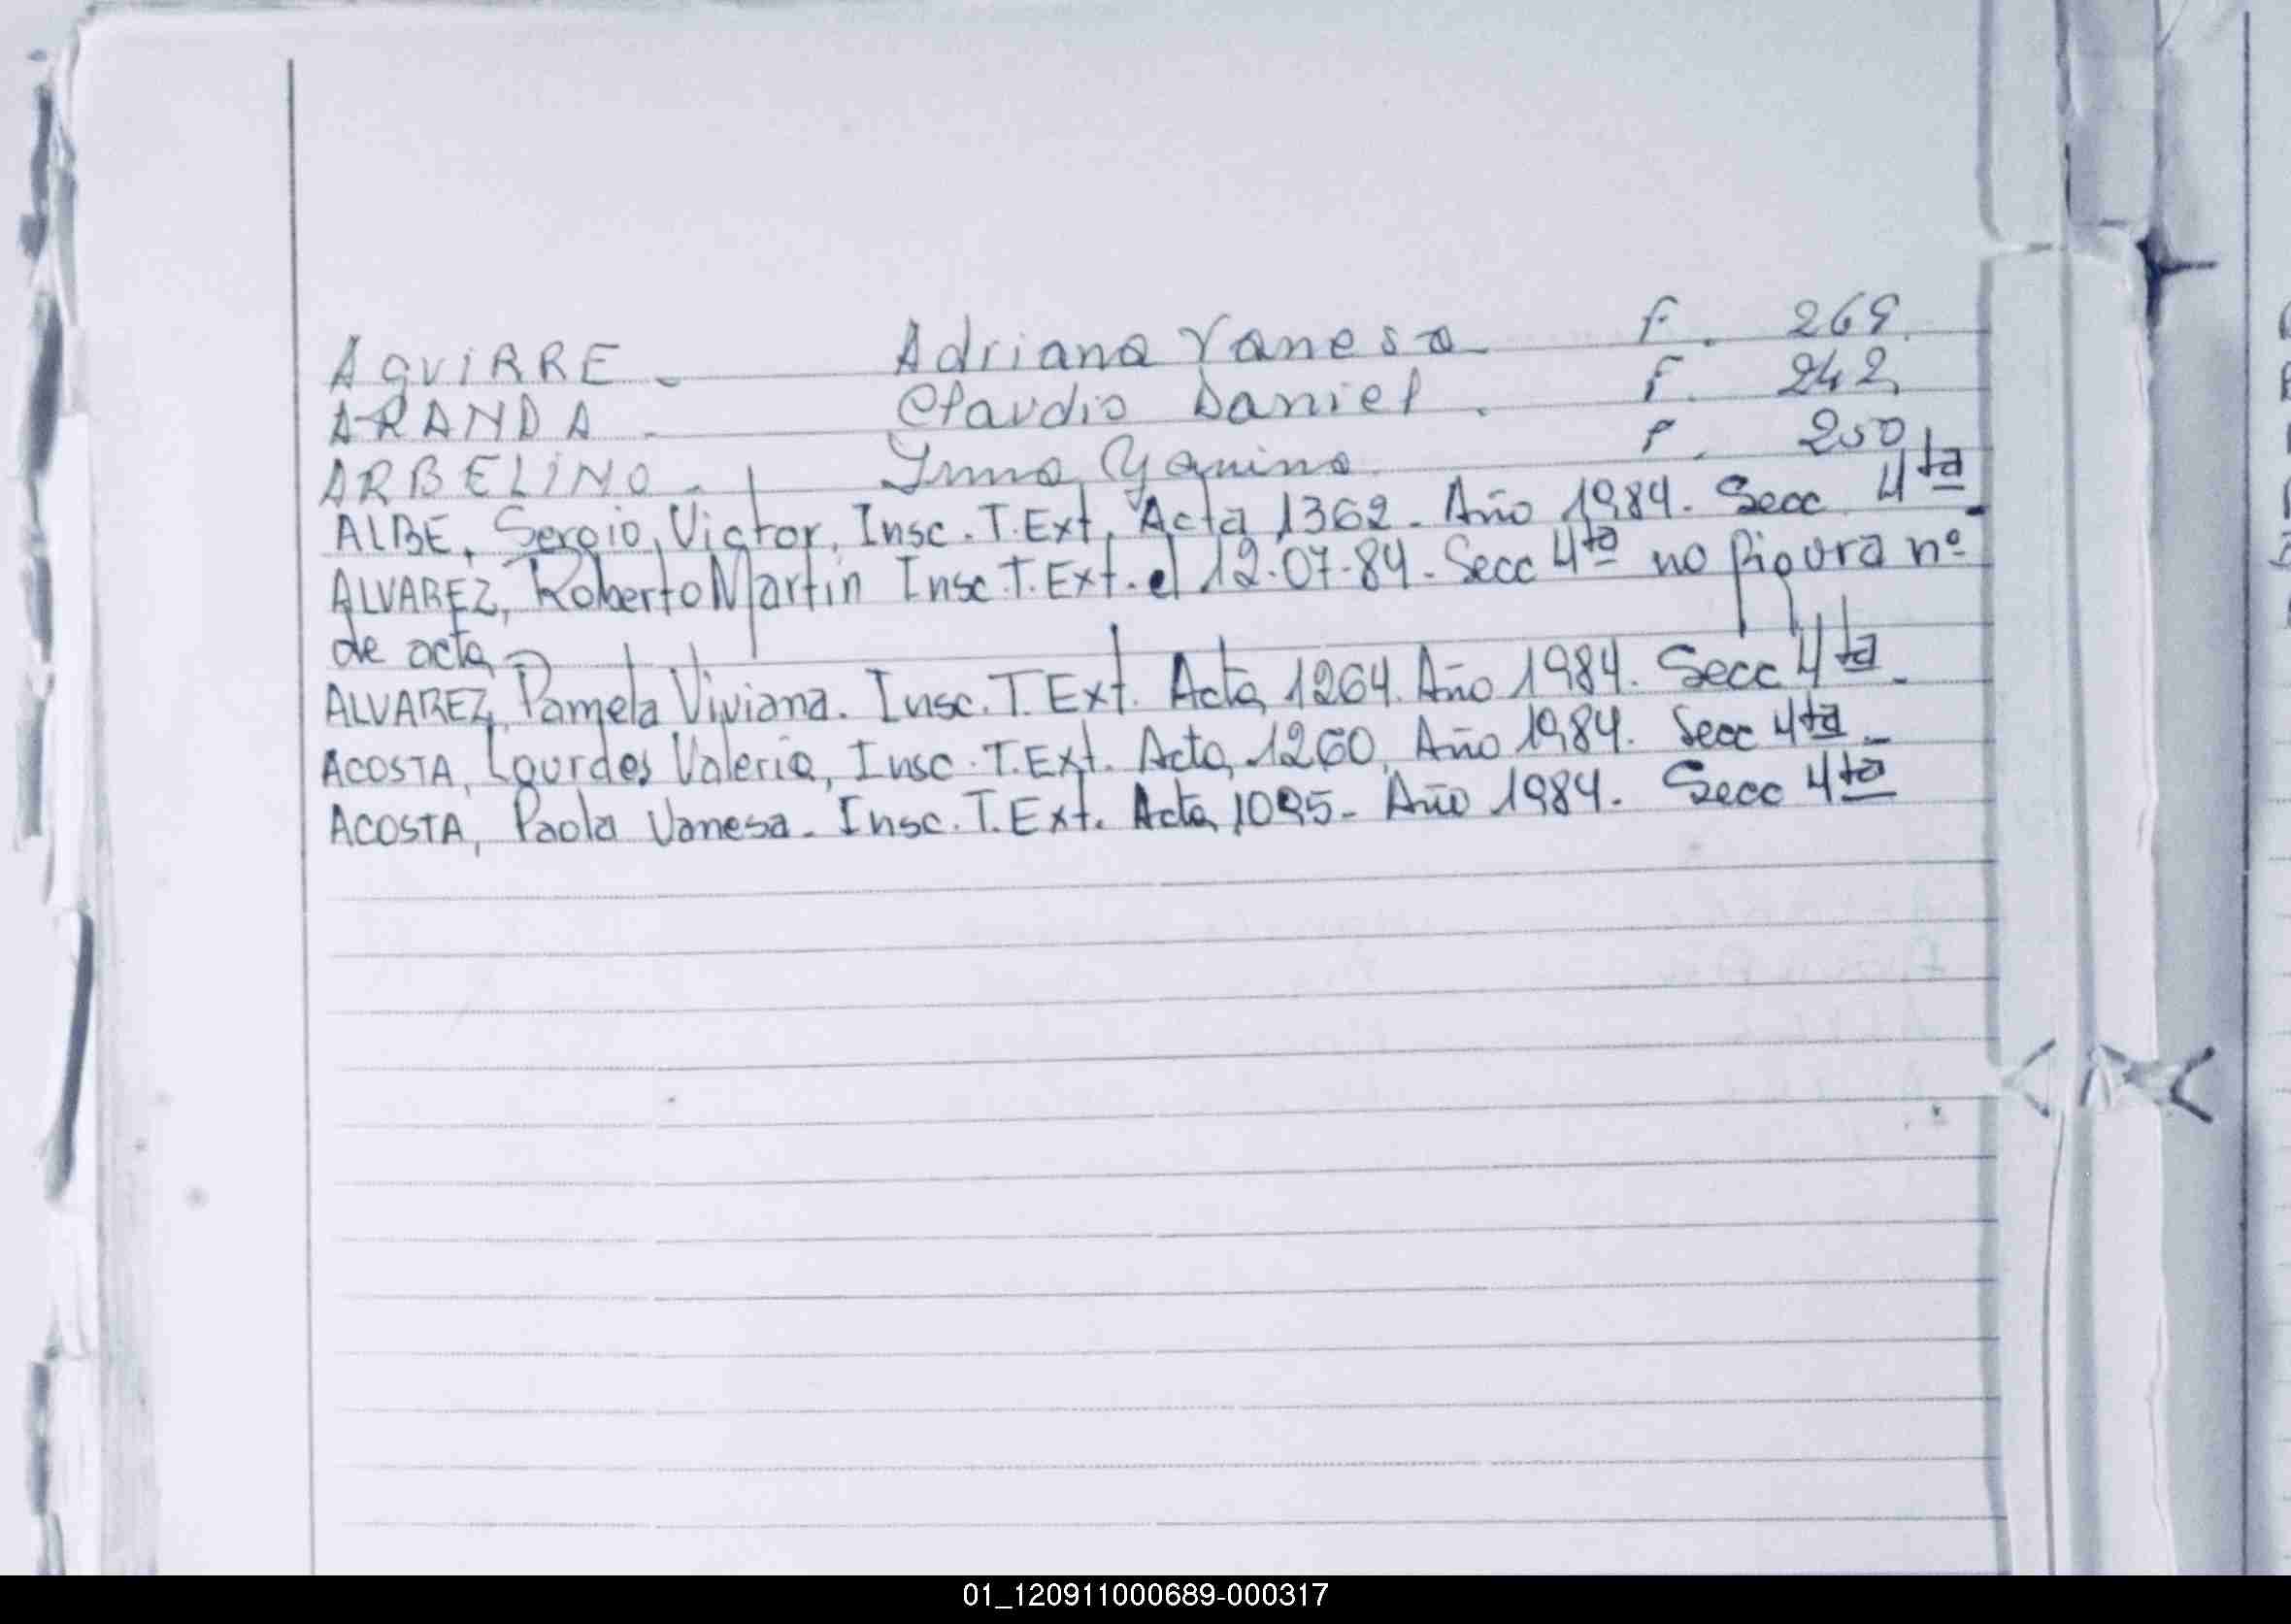 AGUIRRE - Adriana Vanesa - F. 269.
ARANDA - Claudio Daniel. F. 242
ARBELINO - Irma Yanina. F. 250
ALBE, Sergio Victor, Insc. T. Ext. Acta 1362. Año 1984. Secc 4ta -
ALVAREZ, Roberto Martin Insc T. Ext. el 12-07-84. Secc 4ta no figura nº
de acta
ALVAREZ, Pamela Viviana. Insc. T. Ext. Acta 1264. Año 1984. Secc 4ta -
ACOSTA, Lourdes Valeria, Insc. T. Ext. Acta 1260, Año 1984. Secc 4ta -
ACOSTA, Paola Vanesa. Insc. T. Ext. Acta 1095 - Año 1984. Secc 4ta
01_120911000689-000317